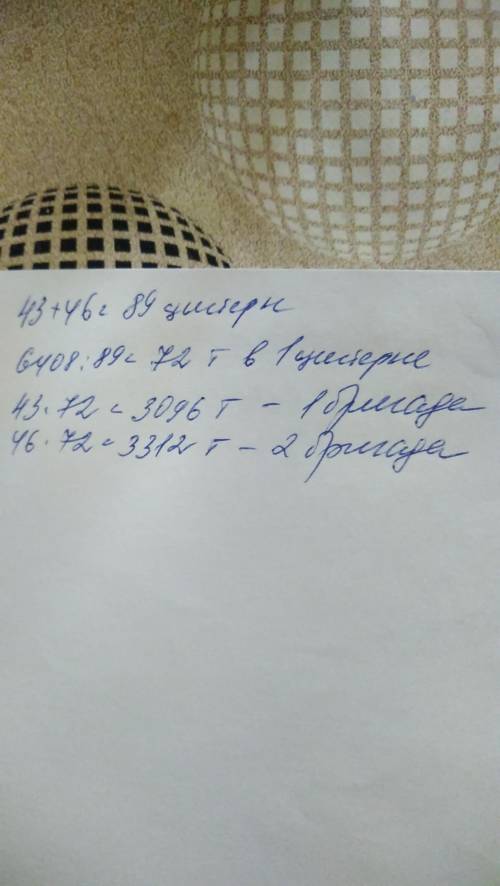 43+46= 89 цистерн
6408:89= 72 т в 1 цистерне
43·72= 3096 т - 1 бригада
46·72= 3312 т - 2 бригада